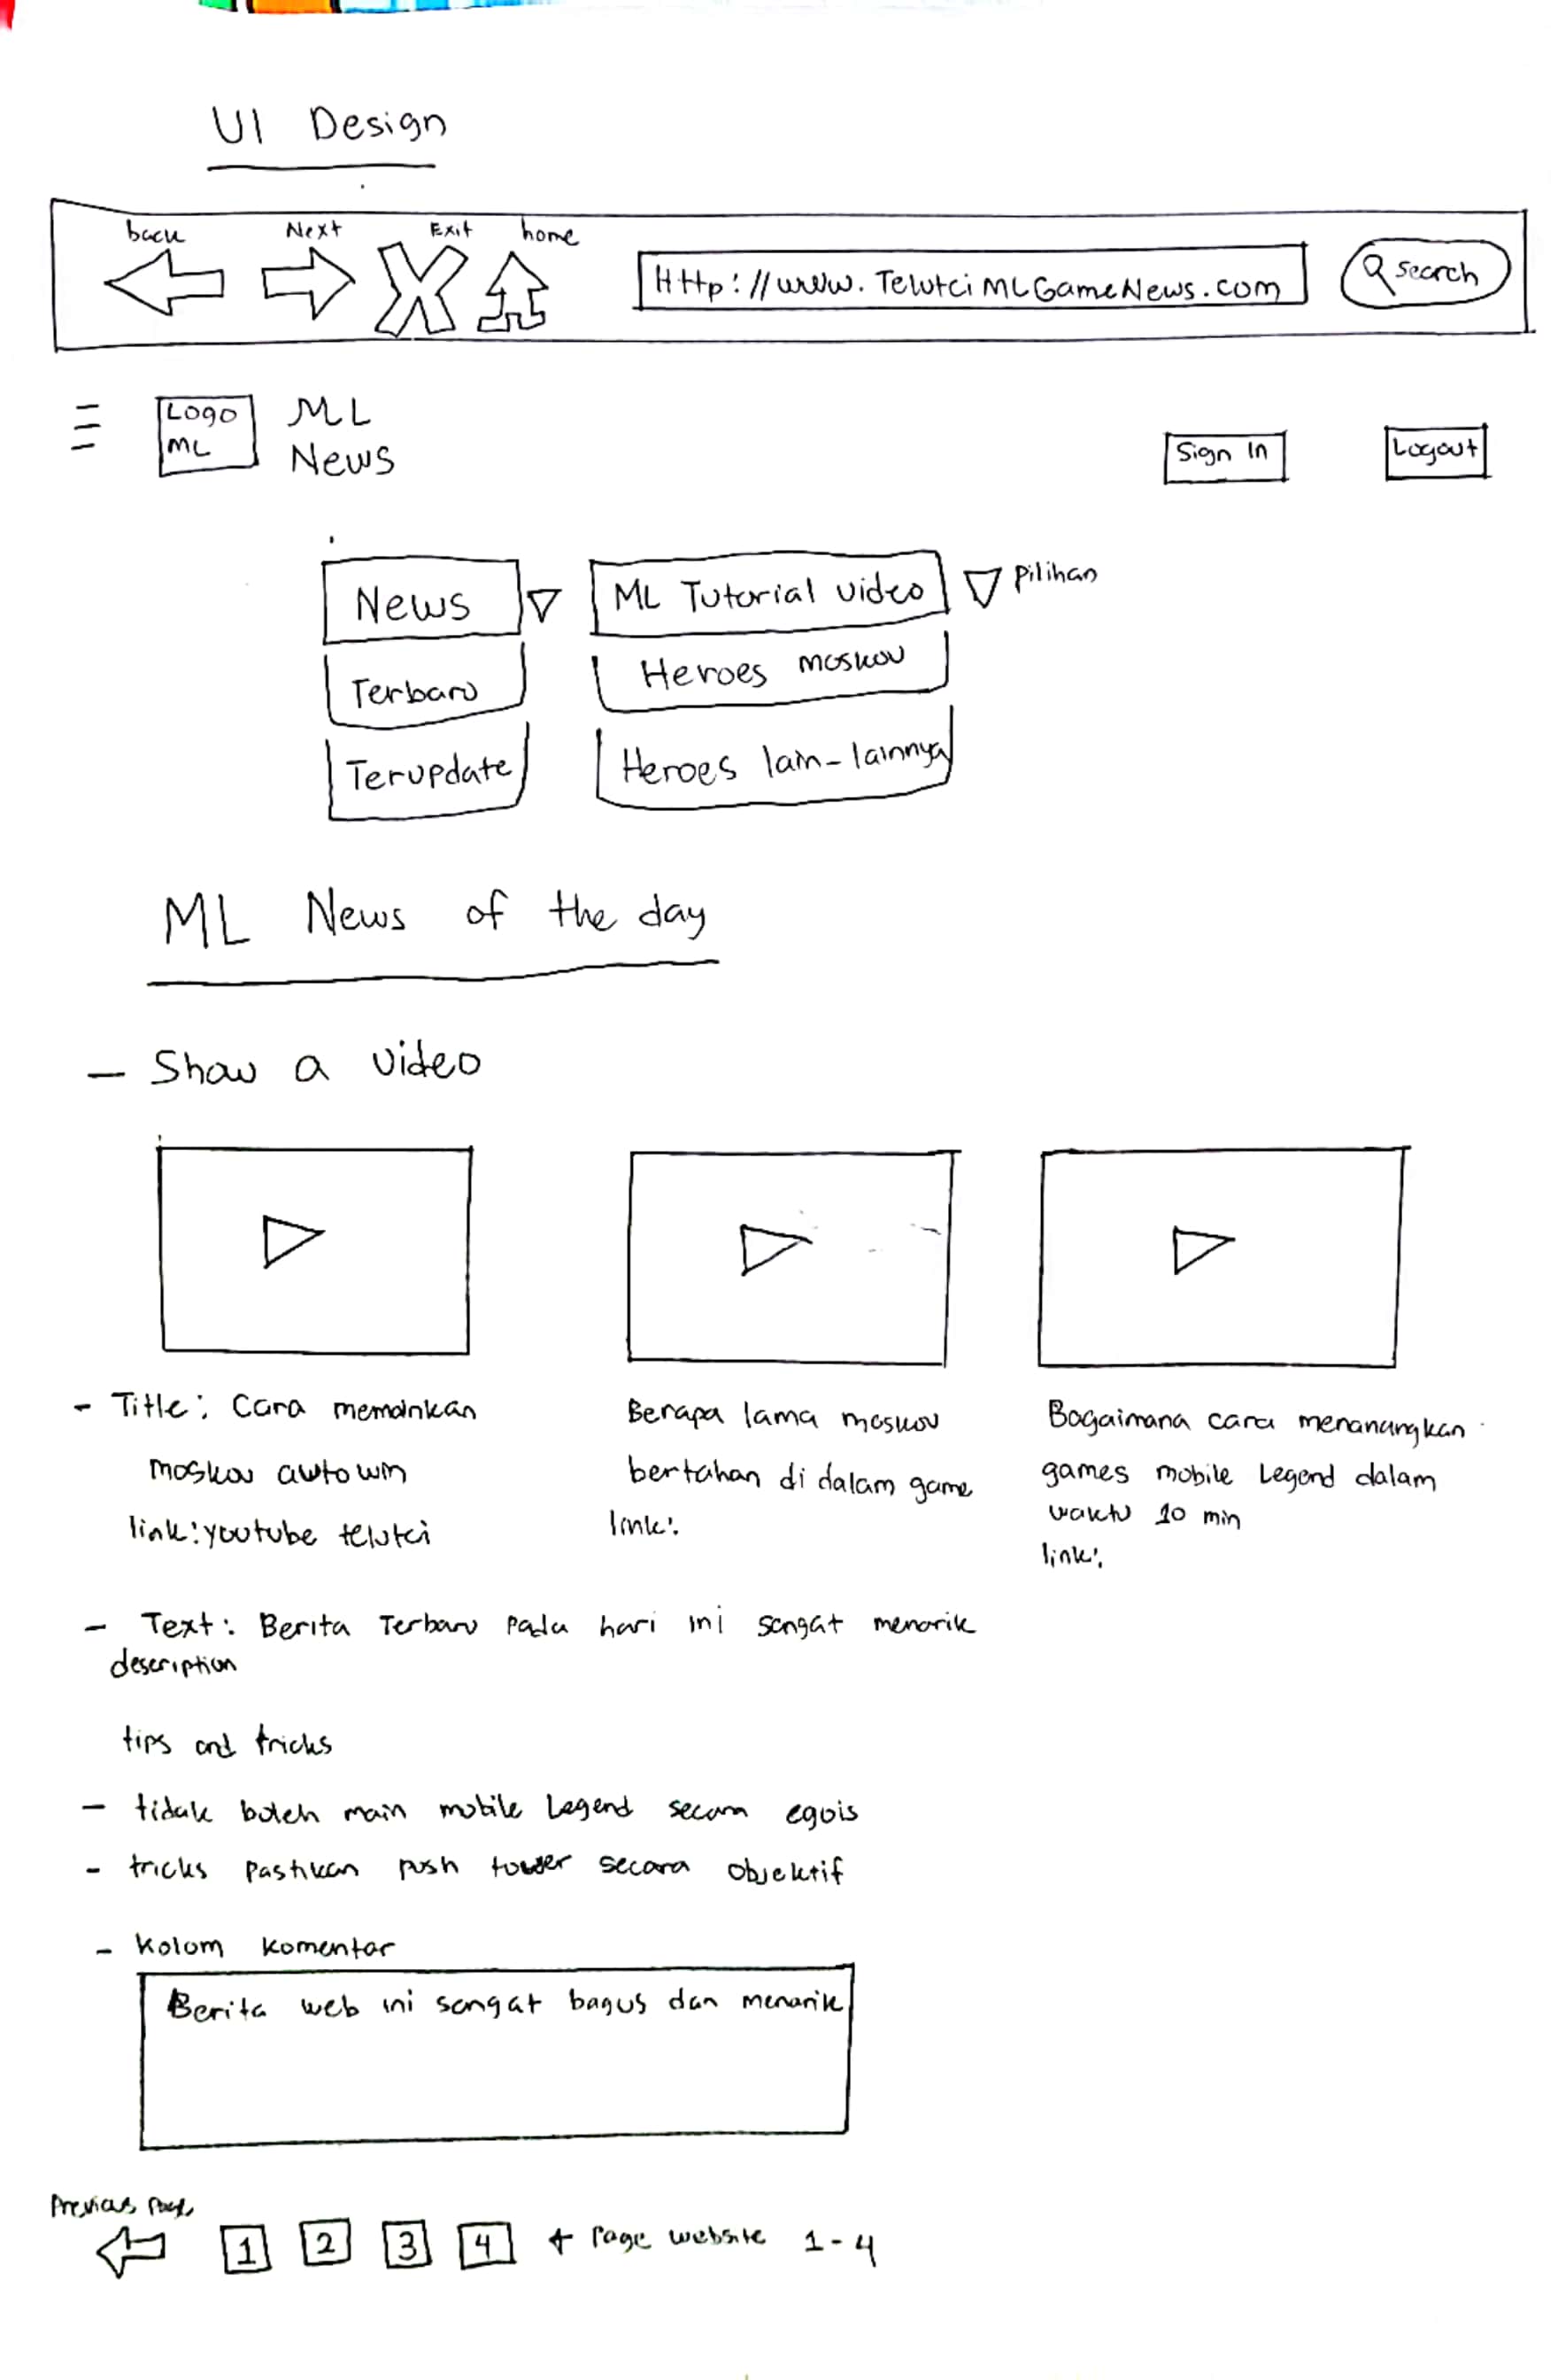 UI Design
back Next Exit home
Http://www.TelutciMLGameNews.com
search
Logo
ML
ML
News
Sign In
Logout
News
ML Tutorial video
Pilihan
Terbaru
Heroes moskov
Terupdate
Heroes lain-lainnya
ML News of the day
- Show a video
- Title: Cara memainkan
moskov autowin
link: youtube telutci
Berapa lama moskov
bertahan di dalam game
link:
Bagaimana cara menanangkan
games mobile Legend dalam
waktu 10 min
link:
- Text: Berita Terbaru pada hari ini sangat menarik
description
tips and tricks
- tidak boleh main mobile Legend secara egois
- tricks Pastikan push tower secara objektif
- Kolom komentar
Berita web ini sangat bagus dan menarik
Previous Page
1 2 3 4 + Page website 1-4